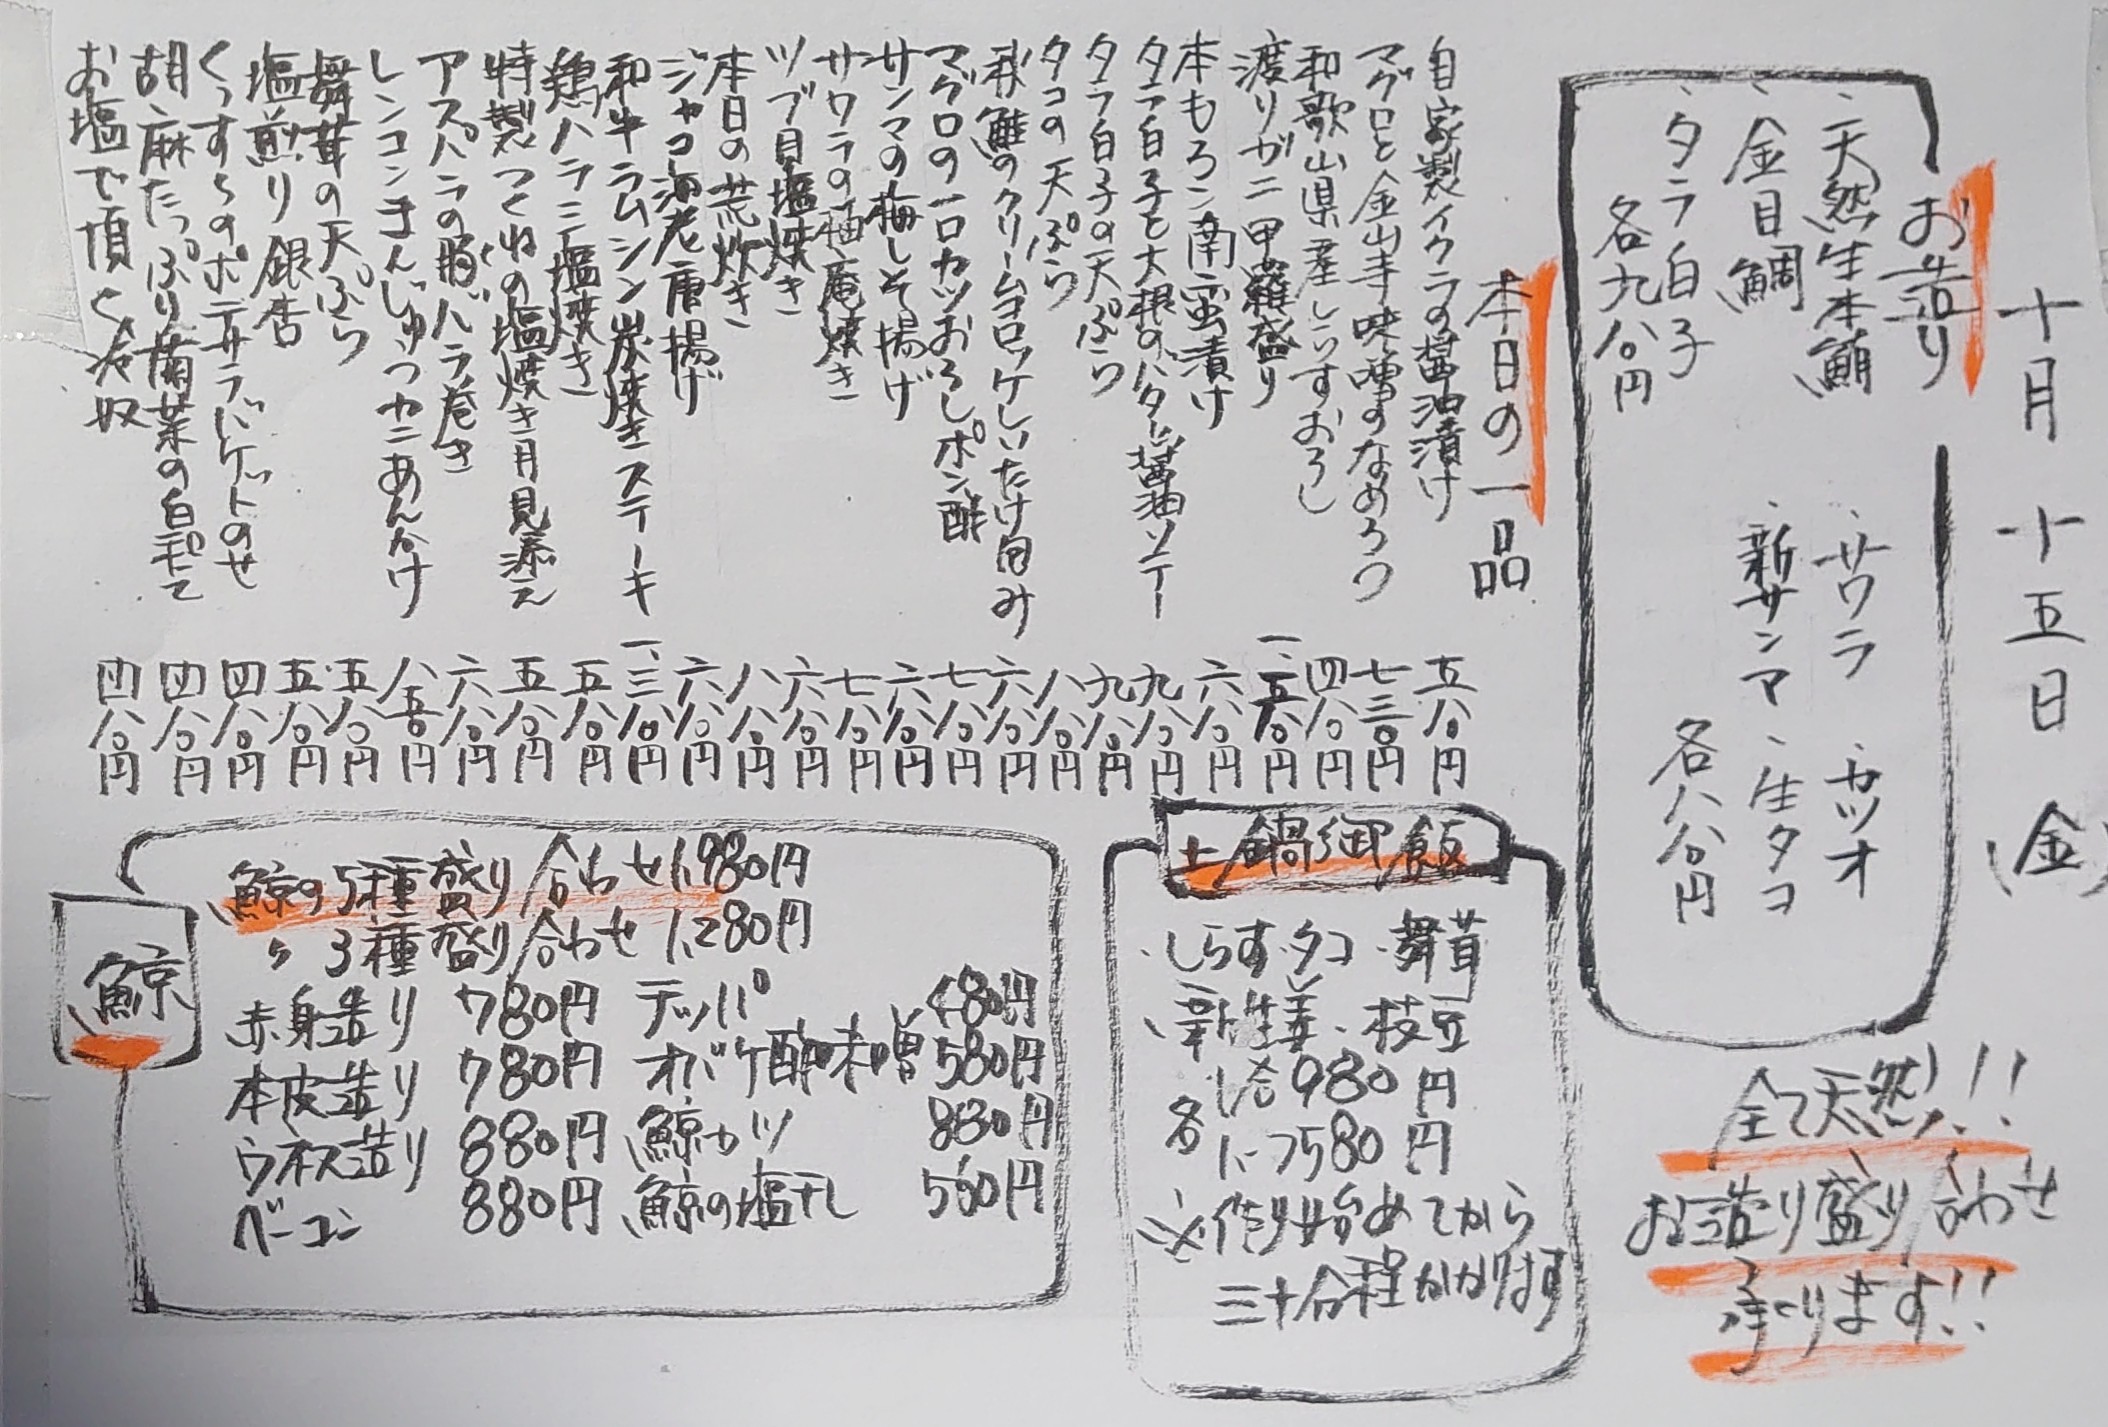 十月十五日(金)
お造り
・天然生本鮪
・サワラ・カツオ
・金目鯛
・新サンマ・生タコ
・タラ白子
各八八〇円
各九八〇円
全て天然!!
お造り盛り合わせ
承ります!!
本日の一品
自家製イクラの醤油漬け 五八〇円
マグロと金山寺味噌のなめろう 七三〇円
和歌山県産しらすおろし 四八〇円
渡りガニ甲羅盛り 一、五八〇円
本もろこ南蛮漬け 六八〇円
タラ白子と大根のバター醤油ソテー 九八〇円
タラ白子の天ぷら 九八〇円
タコの天ぷら 八八〇円
秋鮭のクリームコロッケしいたけ包み 六八〇円
マグロの一口カツおろしポン酢 七八〇円
サンマの梅しそ揚げ 六八〇円
サワラの柚庵焼き 七八〇円
ツブ貝塩焼き 六八〇円
本日の荒炊き 八八〇円
ジャコ海老唐揚げ 六八〇円
和牛ラムシン炭焼きステーキ 一、三八〇円
鶏ハラミ塩焼き 五八〇円
特製つくねの塩焼き月見添え 五八〇円
アスパラの豚バラ巻き 六八〇円
レンコンまんじゅうカニあんかけ 八五〇円
舞茸の天ぷら 五八〇円
塩煎り銀杏 五八〇円
くんすらのポテサラバゲットのせ 四八〇円
胡麻たっぷり菊菜の白和え 四八〇円
お塩で頂く冷奴 四八〇円
土鍋御飯
・しらす・タコ・舞茸
・新生姜・枝豆
各 1合980円
1.5合1580円
※作り始めてから
三十分程かかります
鯨
鯨の5種盛り合わせ 1,980円
〃 3種盛り合わせ 1,280円
赤身造り 780円 テッパ 480円
本皮造り 780円 オバケ酢味噌 580円
ウネス造り 880円 鯨カツ 880円
ベーコン 880円 鯨の塩干し 560円